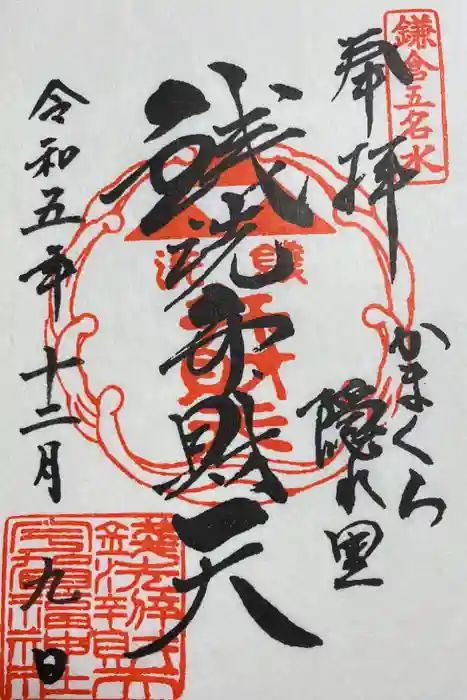 鎌倉五名水
奉拝
かまくら
隠れ里
銭洗弁財天
令和五年十二月
九日